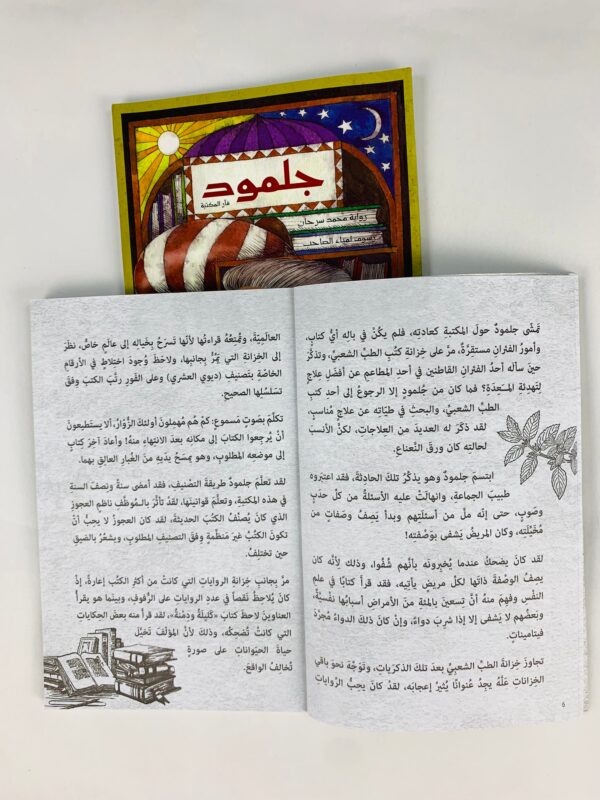 جلمود
فأر المكتبة
رواية محمد سرحان
رسوم: لمياء الصاحب
تمشّى جلمودٌ حولَ المكتبةِ كعادتِه، فلم يكُنْ في بالِه أيُّ كتابٍ،
وأمورُ الفئرانِ مستقِرَّة، مرَّ على خِزانةِ كتُبِ الطبِّ الشعبيِّ، وتذكَّرَ
حينَ سألَه أحدُ الفئرانِ القاطنينَ في أحدِ المطاعمِ عن أفضلِ علاجٍ
لِتهدئةِ المَـعِدَة؟ فما كان من جُلمودٍ إلا الرجوعُ إلى أحدِ كتبِ
الطبِّ الشعبيِّ، والبحث في طيّاتِه عن علاجٍ مُناسِبٍ،
لقد ذكَرَ له العديدَ من العلاجاتِ، لكنَّ الأنسبَ
لحالتِه كان ورقَ النَّعناع.
ابتسمَ جلمودٌ وهو يذكُرُ تلكَ الحادِثَةَ، فقد اعتبَروه
طبيبَ الجماعةِ، وانهالَتْ عليه الأسئلةُ من كلِّ حدَبٍ
وصَوبٍ، حتى إنَّه ملَّ من أسئلتِهم وبدأ يَصِفُ وصَفاتٍ من
مُخَيِّلَتِه، وكان المريضُ يَشفى بوَصْفَتِه!
لقد كانَ يضحكُ عندما يُخبِرونَه بأنَّهم شُفُوا، وذلك لأنَّه كان
يصِفُ الوصْفةَ ذاتَها لكلِّ مريضٍ يأتيه، فقد قرأ كتابًا في علمِ
النفْسِ وفهِمَ منهُ أنَّ تسعينَ بالمئةِ منَ الأمراضِ أسبابُها نفْسيَّةٌ،
وبعضُهم لا يَشفى إلا إذا شرِبَ دواءً، وإنْ كانَ ذلكَ الدواءُ مُجرَّدَ
فيتاميناتٍ.
تجاوزَ خِزانةَ الطبِّ الشعبِيِّ بعدَ تلكَ الذكرَياتِ، وتوَجَّهَ نحوَ باقي
الخِزاناتِ عَلَّهُ يجِدُ عُنوانًا يُثيرُ إعجابَه، لقدْ كانَ يحِبُّ الرِّواياتِ
5
العالَمِيّةَ، وتُمتِعُهُ قراءتُها لأنّها تَسرَحُ بخَيالِه إلى عالَمٍ خاصٍّ، نظرَ
إلى الخِزانةِ التي يَمُرُّ بجانبِها، ولاحَظَ وُجودَ اختلاطٍ في الأرقامِ
الخاصّةِ بتَصنيفِ (ديوي العشري) وعلى الفَورِ رتَّبَ الكتبَ وفقَ
تسَلسُلِها الصحيحِ.
تكلَّمَ بصَوتٍ مَسموعٍ: كمْ هُم مُهمِلونَ أولئكَ الزُّوّارُ، ألا يستَطيعونَ
أنْ يُرجِعوا الكتابَ إلى مكانِه بعدَ الانتِهاءِ منهُ! وأعادَ آخِرَ كتابٍ
إلى مَوضعِه المطلوبِ، وهو يمسَحُ يدَيهِ منَ الغُبارِ العالِقِ بهما.
لقد تعلَّمَ جلمودٌ طريقةَ التصْنيفِ، فقد أمضى سنةً ونصفَ السنةِ
في هذه المكتبةِ، وتعلَّمَ قوانينَها، لقدْ تأثَّرَ بالـمُوظَّفِ ناظمٍ العجوزِ
الذي كان يُصنِّفُ الكتبَ الحديثةَ، لقد كان العجوزُ لا يحِبُّ أنْ
تكونَ الكتُبُ غيرَ مُنظَّمةٍ وِفْقَ التصنيفِ المطلوبِ، ويشعُرُ بالضيقِ
حين تختلفُ.
مرَّ بجانبِ خِزانةِ الرواياتِ التي كانتْ من أكثرِ الكتُبِ إعارةً، إذْ
كانَ يُلاحظُ نَقصاً في عددِ الرواياتِ على الرُّفوفِ، وبينما هو يقرأُ
العناوينَ لاحظَ كتابَ «كَليلةُ ودِمْنةُ»، لقد قرأ منه بعضَ الحِكاياتِ
التي كانتْ تُضحِكُه، وذلكَ لأنَّ المؤلِّفَ تخيَّلَ
حياةَ الحيَواناتِ على صورةٍ
تُخالِفُ الواقعَ.